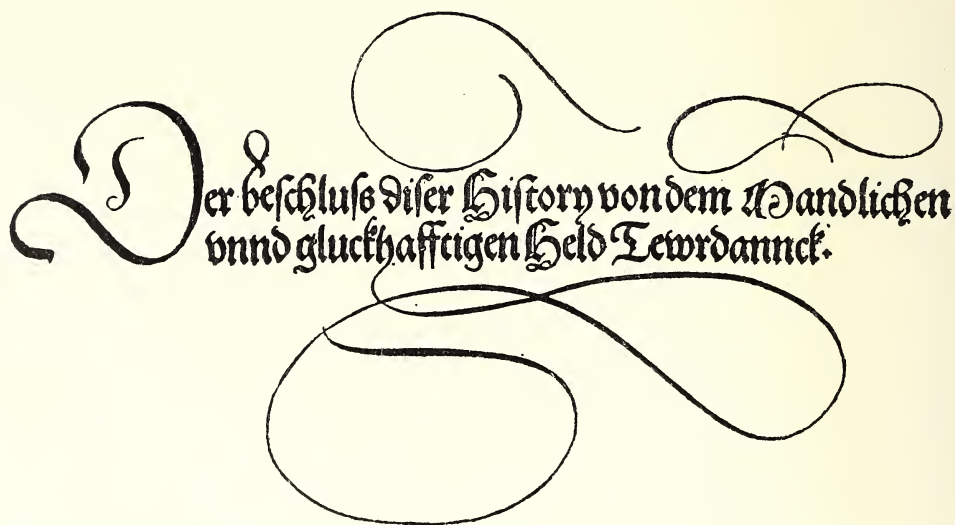 Der beschluſs diser History von dem Mandlichen
vnnd gluckhafftigen Held Tewrdannck.